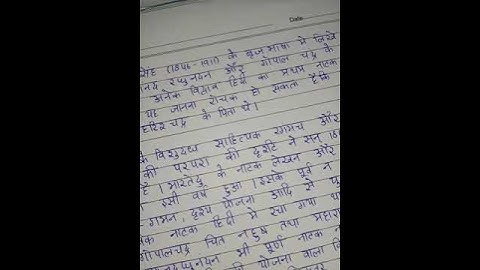 Date
सिंह (1846-1911) के बृजभाषा में लिखे
रघुनन्दन और गोपाल चंद्र के
अनेक विद्वान हिंदी का प्रथम नाटक
यह जानना रोचक हो सकता है कि
हरिश्चंद्र के पिता थे।
के विशुद्ध साहित्यिक रंगमंच और
की परंपरा की दृष्टि से सन्
है। भारतेंदु के नाटक लेखन और
इसी वर्ष हुआ। इसके पूर्व न
गमन, दृश्य योजना आदि से
नाटक हिंदी में रचा गया था
गोपालचंद्र नहुष तथा महाराज
भी पूर्ण नाटक
योजना वाला